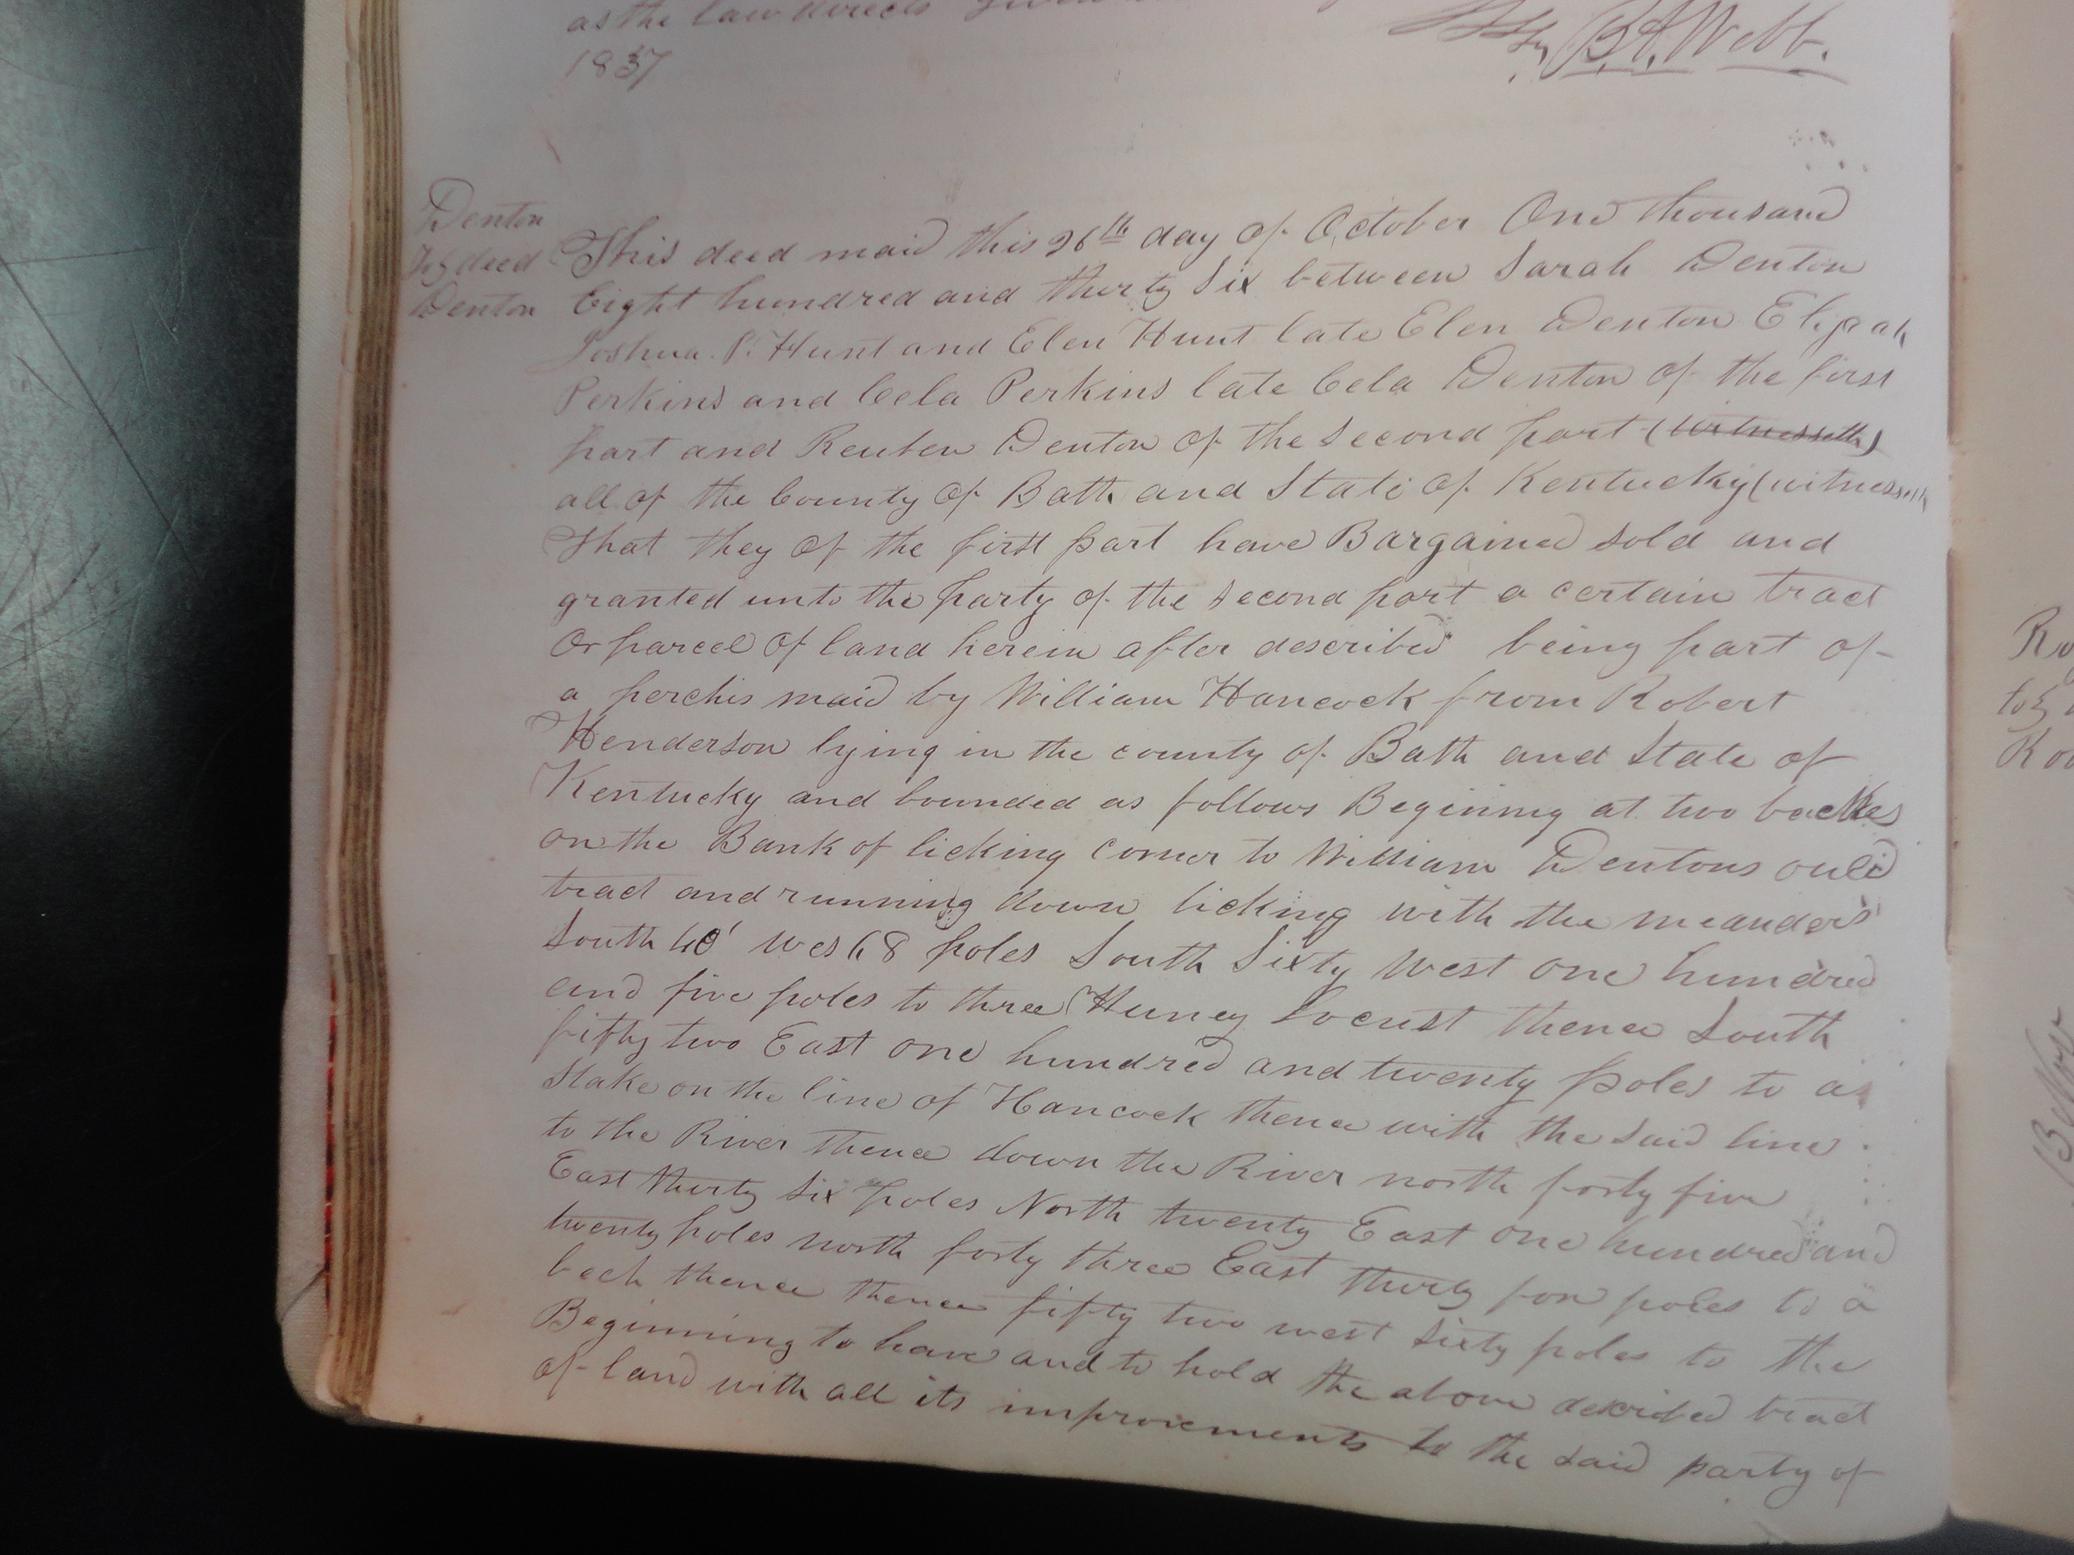 as the law directs Given
1837
B. A. Webb.
Denton
To } deed
Denton
This deed maid this 26th day of October One thousand
Eight hundred and thirty Six between Sarah Denton
Joshua P. Hunt and Elen Hunt late Elen Denton Elijah
Perkins and Cela Perkins late Cela Denton of the first
part and Reuben Denton of the second part (Witnesseth)
all of the County of Bath and State of Kentucky (witnesseth
That they of the first part have Bargained sold and
granted unto the party of the second part a certain tract
Or parcel Of land herein after described being part of
a perchis maid by William Hancock from Robert
Henderson lying in the county of Bath and State of
Kentucky and bounded as follows Begining at two
on the Bank of licking corner to William Dentons ould
tract and running down licking with the meanders
South 40' wes 68 poles South Sixty West one hundred
and five poles to three Huney Locust thence South
fifty two East one hundred and twenty poles to a
Stake on the line of Hancock thence with the said line
to the River thence down the River north forty five
East thirty six poles North twenty East one hundred and
twenty poles north forty three East thirty four poles to a
bech thence thence fifty two west sixty poles to the
Beginning to have and to hold the above described tract
of land with all its improvements to the said party of